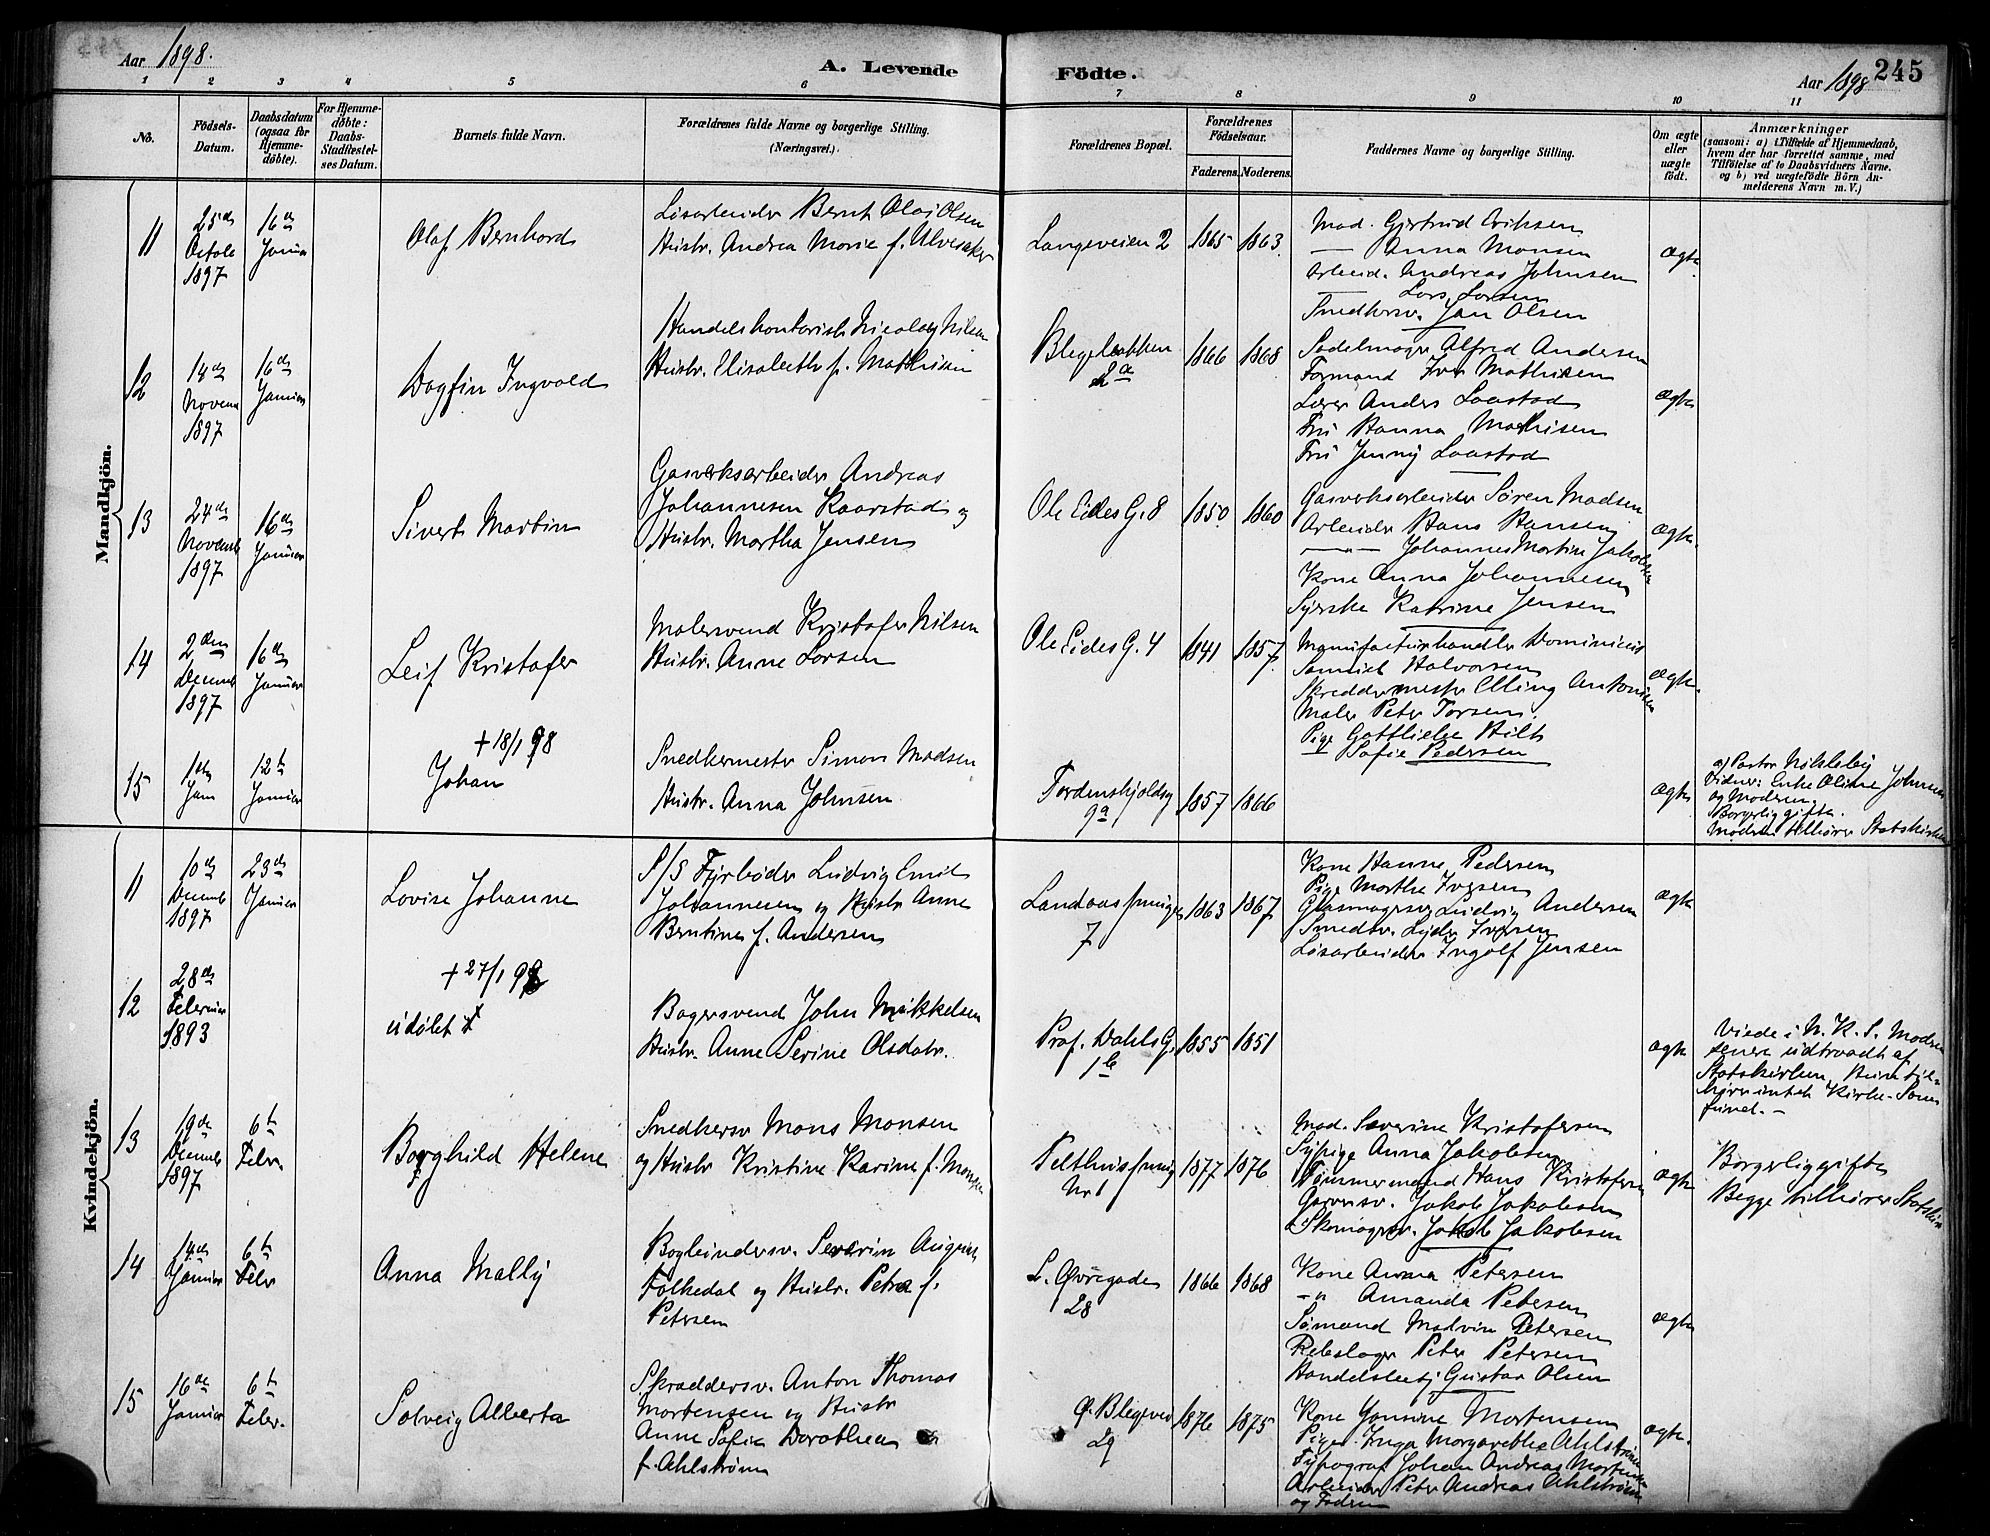 Aar 1898.
A. Levende Födte.
Aar 1898 245
1 2 3 4 5 6 7 8 9 10 11
No.
Födsels-Datum.
Daabsdatum (ogsaa for Hjemmedøbte).
For Hjemmedøbte: Daabs-Stadfæstelses Datum.
Barnets fulde Navn.
Forældrenes fulde Navne og borgerlige Stilling.
(Næringsvei.)
Forældrenes Bopæl.
Forældrenes Födselsaar.
Faderens. Moderens.
Faddernes Navne og borgerlige Stilling.
Om ægte eller uægte født.
Anmærkninger
(saasom: a) i Tilfælde af Hjemmedaab,
hvem der har forrettet samme, med
Tilföielse af to Daabsvidners Navne.
og b) ved uægtefödte Börn An-
melderens Navn m. V.)
Mandkjön.
11
25de Octob 1897
16de Januar
Olaf Bernhard
Løsarbeider Bernt Olai Olsen
Hustr. Andrea Marie f. Ulvesaker
Langeveien 2
1865 1863
Mad. Gjertrud Eriksen
— Anna Monsen
Arbeid. Andreas Johnsen
— Lars Larsen
Snedkersv. Jan Olsen
ægte.
12
14de Novemb 1897
16de Januar
Dagfin Ingvald
Handelskontorist Nicolay Nilsen
Hustr. Elisabeth f. Mathisen
Blegebakken 2a
1866 1868
Sadelmager Alfred Andersen
Formand Iver Mathisen
Lærer Anders Laastad
Fru Hanna Mathisen
Fru Jenny Laastad
ægte
13
24de Novemb 1897
16de Januar
Sivert Martin
Gasverksarbeider Andreas
Johannesen Kaarstad og
Hustr. Martha Jensen
Ole Eides G. 8
1850 1860
Gasverksarbeider Søren Madsen
Arbeider Hans Hansen
—"— Johannes Martin Jakobsen
Kone Anna Johannesen
Syerske Katrine Jensen
ægte.
14
2den Decemb 1897
16de Januar
Leif Kristofer
Malersvend Kristofer Nilsen
Hustr. Anne Larsen
Ole Eides G. 4
1841 1857
Manufacturhandler Dominicus
Samuel Halvorsen
Skreddermester Elling Antonisen
Maler Peter Torsen.
Pige Gottliebe Hilt
— Sofie Pedersen
ægte.
15
1ste Jan
12te Januar
+ 18/1 98
Johan
Snedkermester Simon Madsen
Hustr. Anna Johnsen
Tordenskjoldsg 9a
1857 1866
ægte
a) Pastor Nikleby
Vidner: Enke Oline Johnsen
og Moderen.
Borgerlig gifte.
Moderen tilhører Statskirken
Kvindekjön.
11
10de Decemb 1897
23de Januar
Lovise Johanne
S/S Fyrbøder Ludvig Emil
Johannesen og Hustr Anne
Berntine f. Andersen
Landaassmuget 7
1863 1867
Kone Hanne Pedersen
Pige Marthe Iversen
Glasmagersv Ludvig Andersen
Smedsv. Lyder Iversen
Løsarbeider Ingolf Jensen
ægte
12
28de Februar 1893
+ 27/1 98
udøbt
Bagersvend John Mikkelsen
Hustr. Anne Serine Olsdatr.
Prof. Dahls G. 1b
1855 1851
ægte
Viede i N. K. S. Moderen
senere udtraadt af
Statskirken, Huin til-
hører intet Kirke-Sam
fund. -
13
19de Decemb 1897
6te Febr
Borghild Helene
Snedkersv Mons Monsen
og Hustr Kristine Karine f. Monsen
Pelthussmug Nr 1
1877 1876
Mad. Severine Kristofersen
Sypige Anna Jakobsen
Tømmermand Hans Kristofersen
Garversv. Jakob Jakobsen
Skomagersv. Jakob Jakobsen
ægte
Borgerlig gifte
Begge tilhører Statskirk
14
14de Januar
6te Febr
Anna Mally
Bogbindersv. Severin August
Folkedal og Hustr. Petra f.
Petersen
L. Øvregade 28
1866 1868
Kone Anna Petersen
-"- Amanda Petersen
Sømand Madvin Petersen
Rebslager Peter Petersen
Handelsbetj Gustav Olsen
ægte
15
16de Januar
6te Febr.
Solveig Alberta
Skraddersv. Anton Thomas
Mortensen og Hustr
Anne Sofie Dorothea
f. Ahlstrøm
Ø. Blegevei 29
1876 1875
Kone Jonsine Mortensen
Piger Inga Margarethe Ahlstrøm
Typograf Johan Andreas Mortensen
Arbeider Peter Andreas Ahlstrøm
og Faderen
ægte.